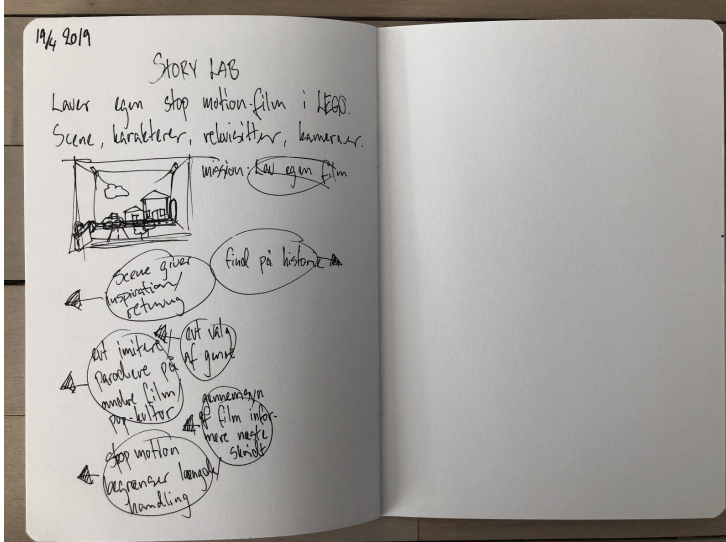 19/4 2019
STORY LAB
Laver egen stop motion-film i LEGO.
Scene, karakterer, rekvisitter, kameraer.
mission: Lav egen film
find på historie
Scene giver
inspiration/
retning
evt valg
af genre
evt imitere/
parodiere på
andre film/
pop-kultur
gennemsyn
af film infor-
mere næste
skridt
stop motion
begrænser længde/
handling